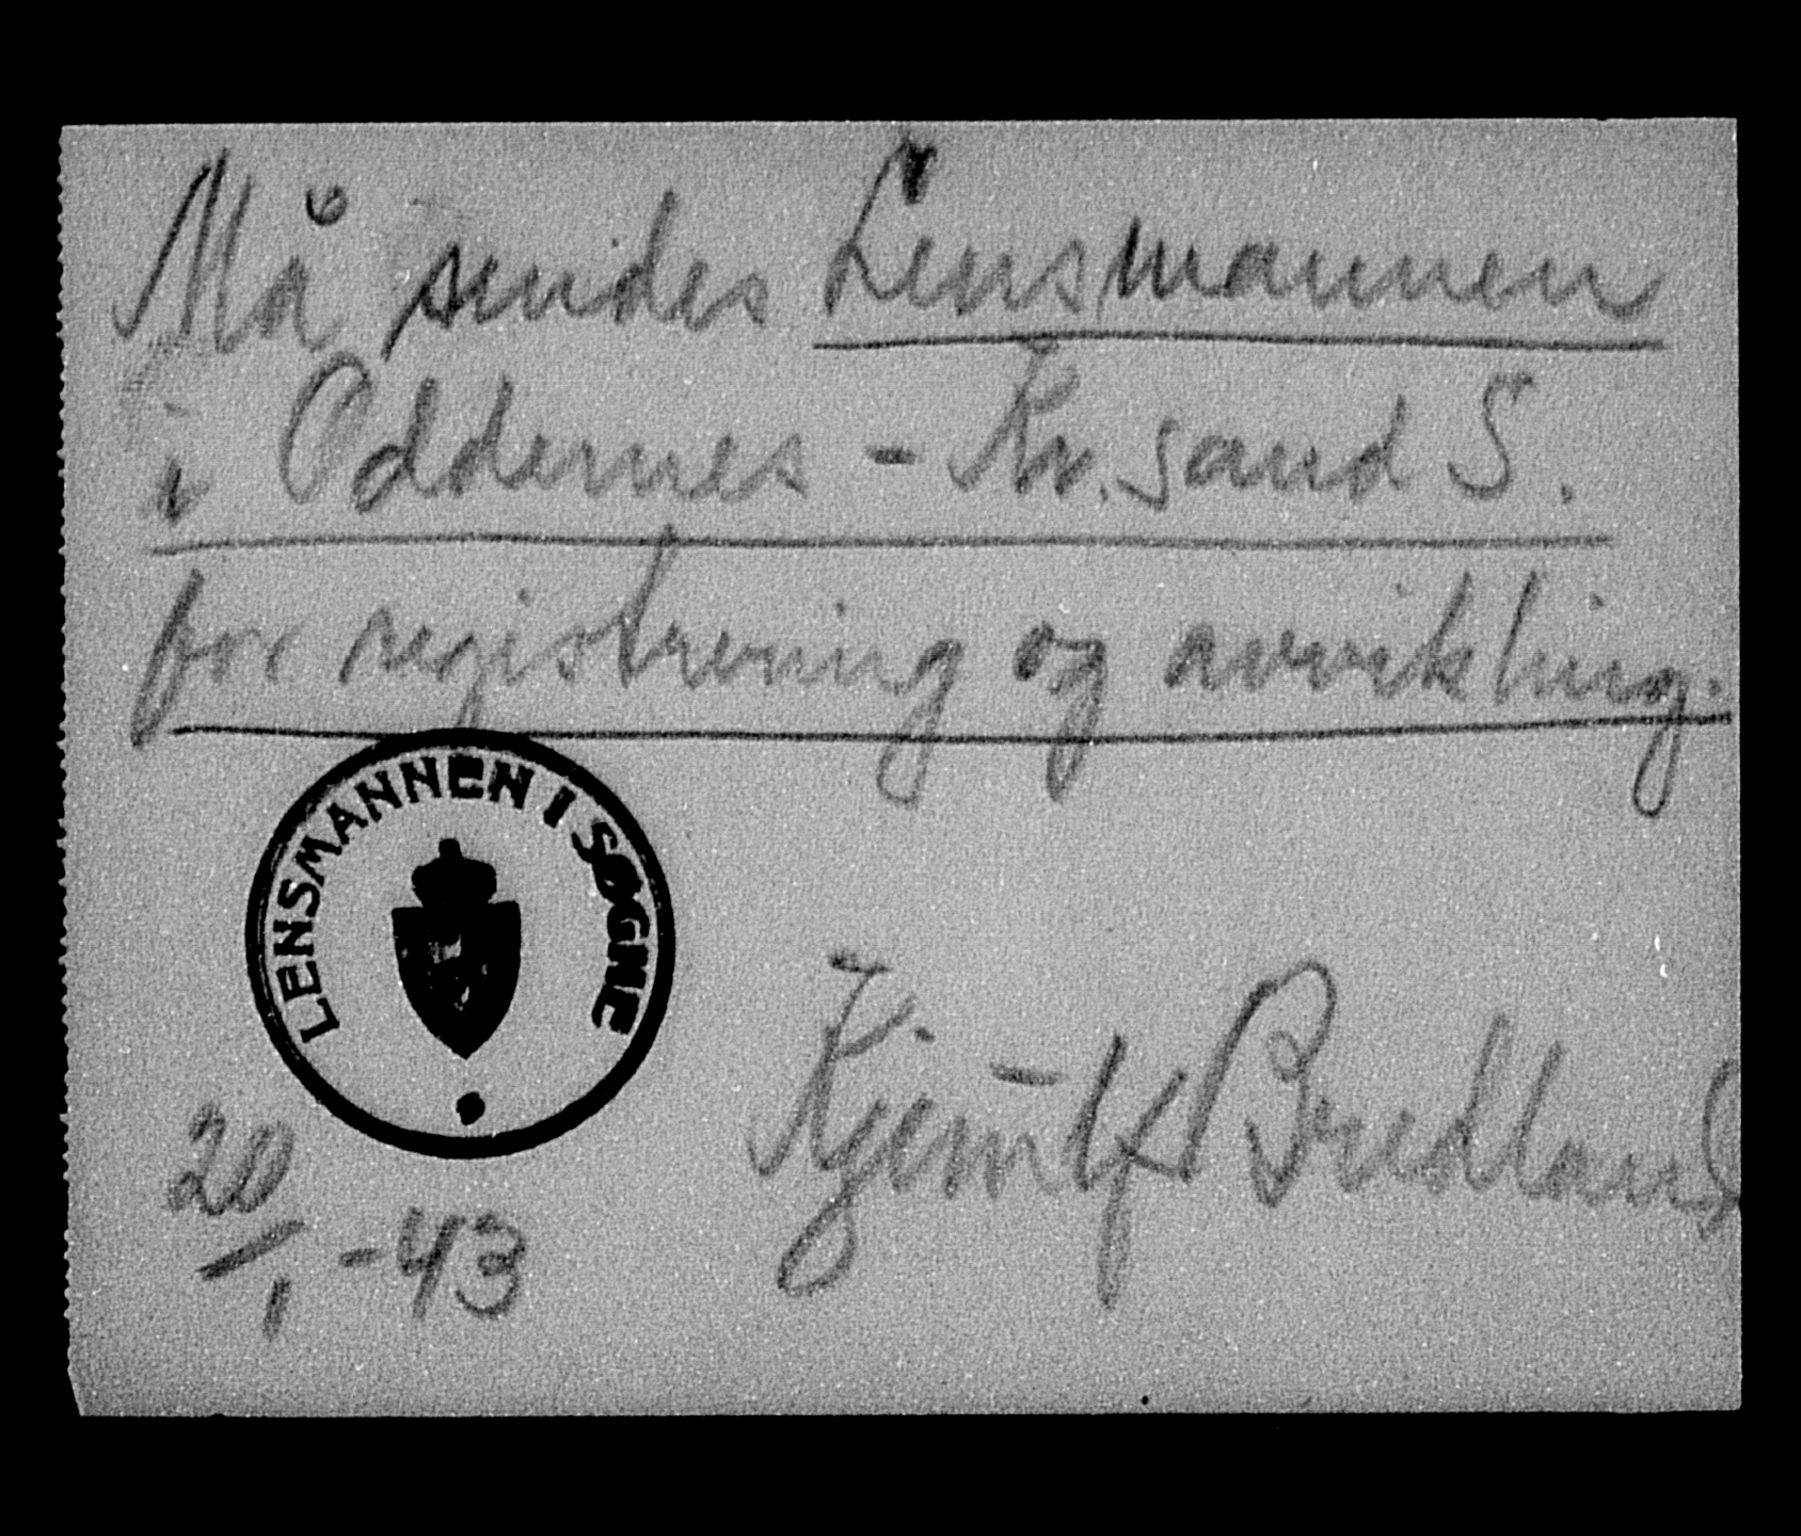 Må sendes Lensmannen
i Oddernes - Kr.sand S.
for registrering og avvikling.
LENSMANNEN I SØGNE
20/1 -43
Bredland